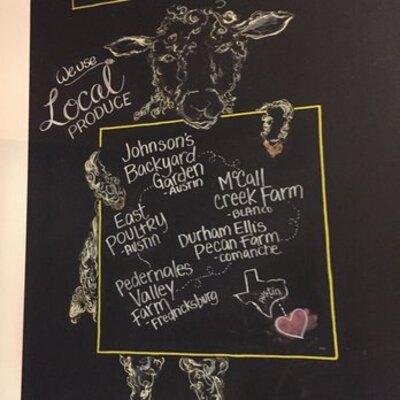 We use
Local
PRODUCE
Johnson's
Backyard
Garden
-AUSTIN
McCall
Creek Farm
-BLANCO
East
POULTRY
-AUSTIN
Durham Ellis
Pecan Farm
-COMANCHE
Pedernales
Valley
Farm
-Fredricksburg
Austin